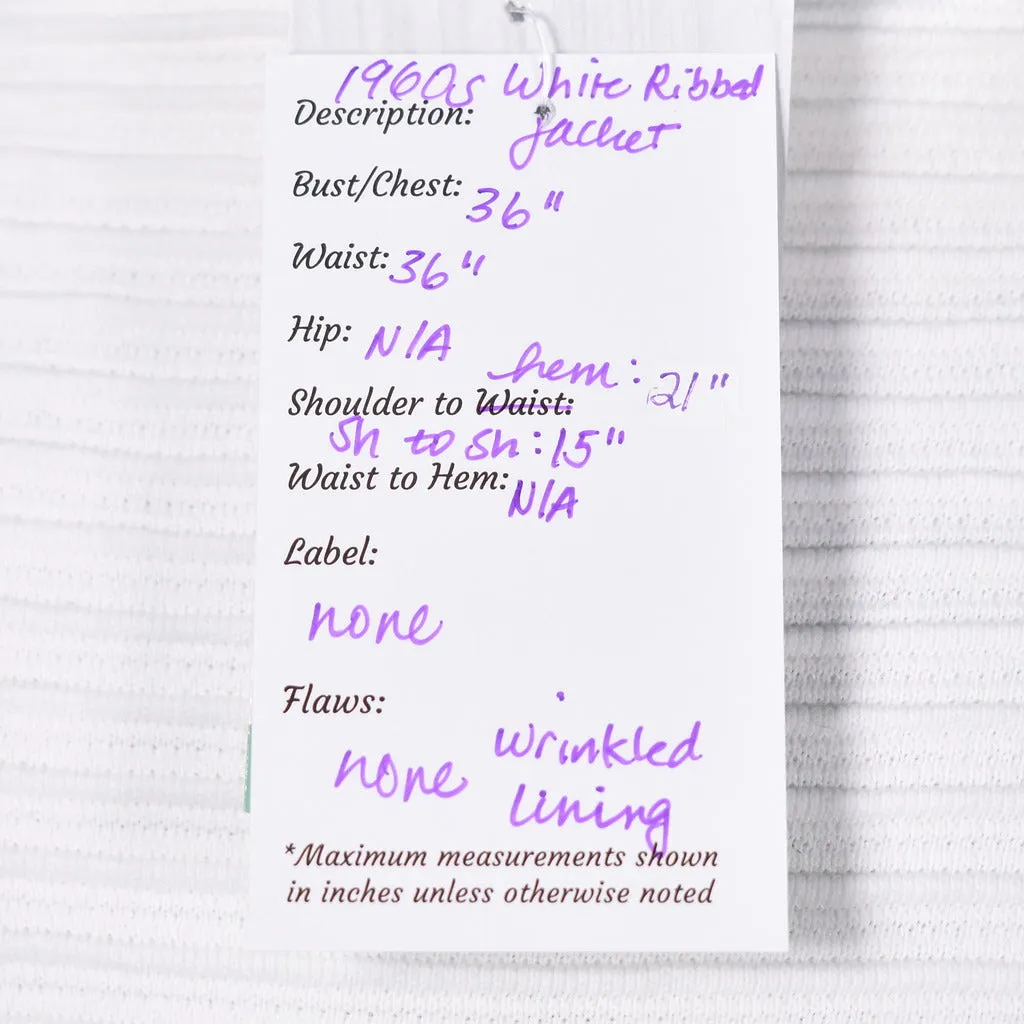 1960s White Ribbed
Description: jacket
Bust/Chest: 36"
Waist: 36"
Hip: N/A
hem: 21"
Shoulder to Waist:
Sh to Sh: 15"
Waist to Hem: N/A
Label:
none
Flaws:
none wrinkled
lining
*Maximum measurements shown
in inches unless otherwise noted